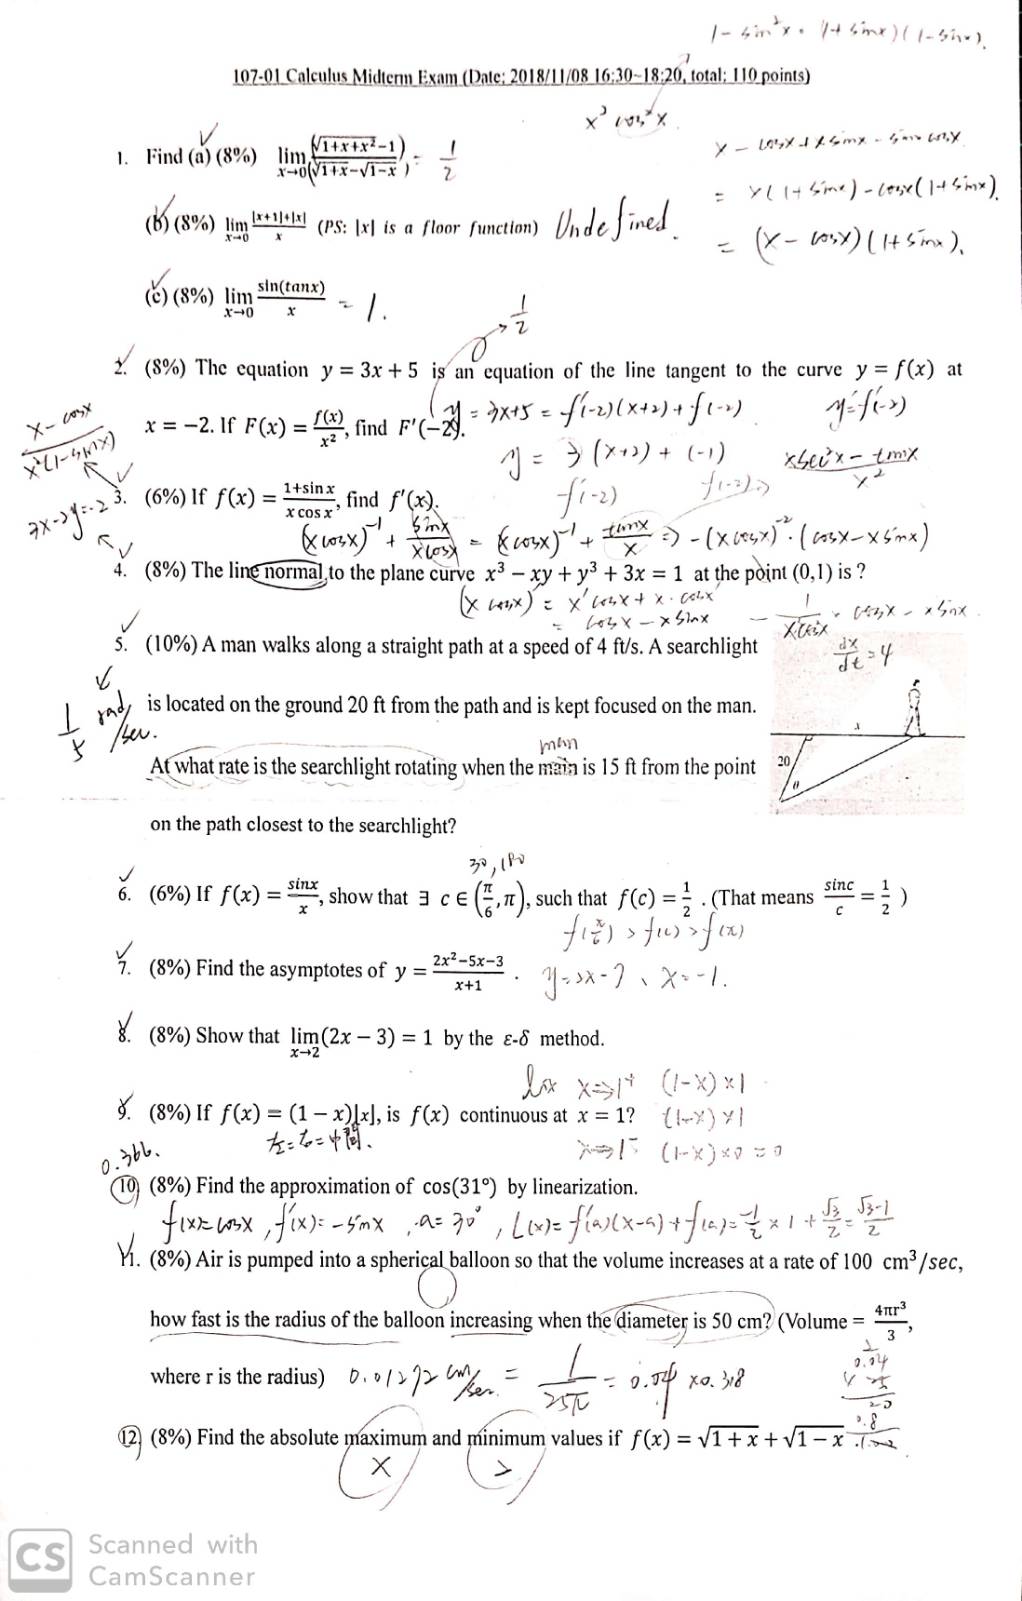 1 - sin²x = (1+sinx)(1-sinx).
107-01 Calculus Midterm Exam (Date: 2018/11/08 16:30~18:20, total: 110 points)
x² cos²x
1. Find (a) (8%) lim x→0 (√1+x+x²−1)/(√1+x−√1−x) = 1/2
x - cosx + x sinx - sinx cosx
= x(1+sinx) - cosx(1+sinx).
= (x - cosx)(1+sinx).
(b) (8%) lim x→0 (⌊x+1⌋+⌊x⌋)/x (PS: ⌊x⌋ is a floor function) Undefined.
(c) (8%) lim x→0 sin(tanx)/x = 1.
1/2
2. (8%) The equation y = 3x + 5 is an equation of the line tangent to the curve y = f(x) at
x = −2. If F(x) = f(x)/x², find F′(−2).
y = 3x+5 = f'(-2)(x+2) + f(-2)
y'=f'(-2)
y = 3(x+2) + (-1)
f'(-2) f(-2)
(x sec²x - tanx)/x²
(x - cosx)/(x²(1-sinx))
3. (6%) If f(x) = (1+sin x)/(x cos x), find f′(x).
(xcosx)⁻¹ + sinx/(xcosx) = (xcosx)⁻¹ + tanx/x ⇒ -(xcosx)⁻²·(cosx-xsinx)
3x->y=-2
4. (8%) The line normal to the plane curve x³ − xy + y³ + 3x = 1 at the point (0,1) is ?
(x cosx)' = x'cosx + x·cosx'
= cosx - x sinx
5. (10%) A man walks along a straight path at a speed of 4 ft/s. A searchlight
dx/dt = 4
is located on the ground 20 ft from the path and is kept focused on the man.
1/5 rad/sec.
man
At what rate is the searchlight rotating when the main is 15 ft from the point
x
20
θ
on the path closest to the searchlight?
30, 180
6. (6%) If f(x) = sinx/x, show that ∃ c ∈ (π/6, π), such that f(c) = 1/2 . (That means sinc/c = 1/2 )
f(π/6) > f(c) > f(π)
7. (8%) Find the asymptotes of y = (2x²−5x−3)/(x+1) . y=2x-7、x=-1.
8. (8%) Show that lim x→2 (2x − 3) = 1 by the ε-δ method.
x⇒1⁺ (1-x)×1
9. (8%) If f(x) = (1 − x)⌊x⌋, is f(x) continuous at x = 1? (1-x)×1
左=右=中間.
x⇒1⁻ (1-x)×0 = 0
0.366.
10 (8%) Find the approximation of cos(31°) by linearization.
f(x)=cosx, f'(x)=-sinx, a=30°, L(x)=f'(a)(x-a)+f(a)= -1/2 ×1 + √3/2 = (√3-1)/2
11. (8%) Air is pumped into a spherical balloon so that the volume increases at a rate of 100 cm³/sec,
how fast is the radius of the balloon increasing when the diameter is 50 cm? (Volume = 4πr³/3,
where r is the radius) 0.01272 cm/sec = 1/25π = 0.04 ×0.318
0.04
25
20
0.8
12 (8%) Find the absolute maximum and minimum values if f(x) = √1 + x + √1 − x
X
CS Scanned with
CamScanner